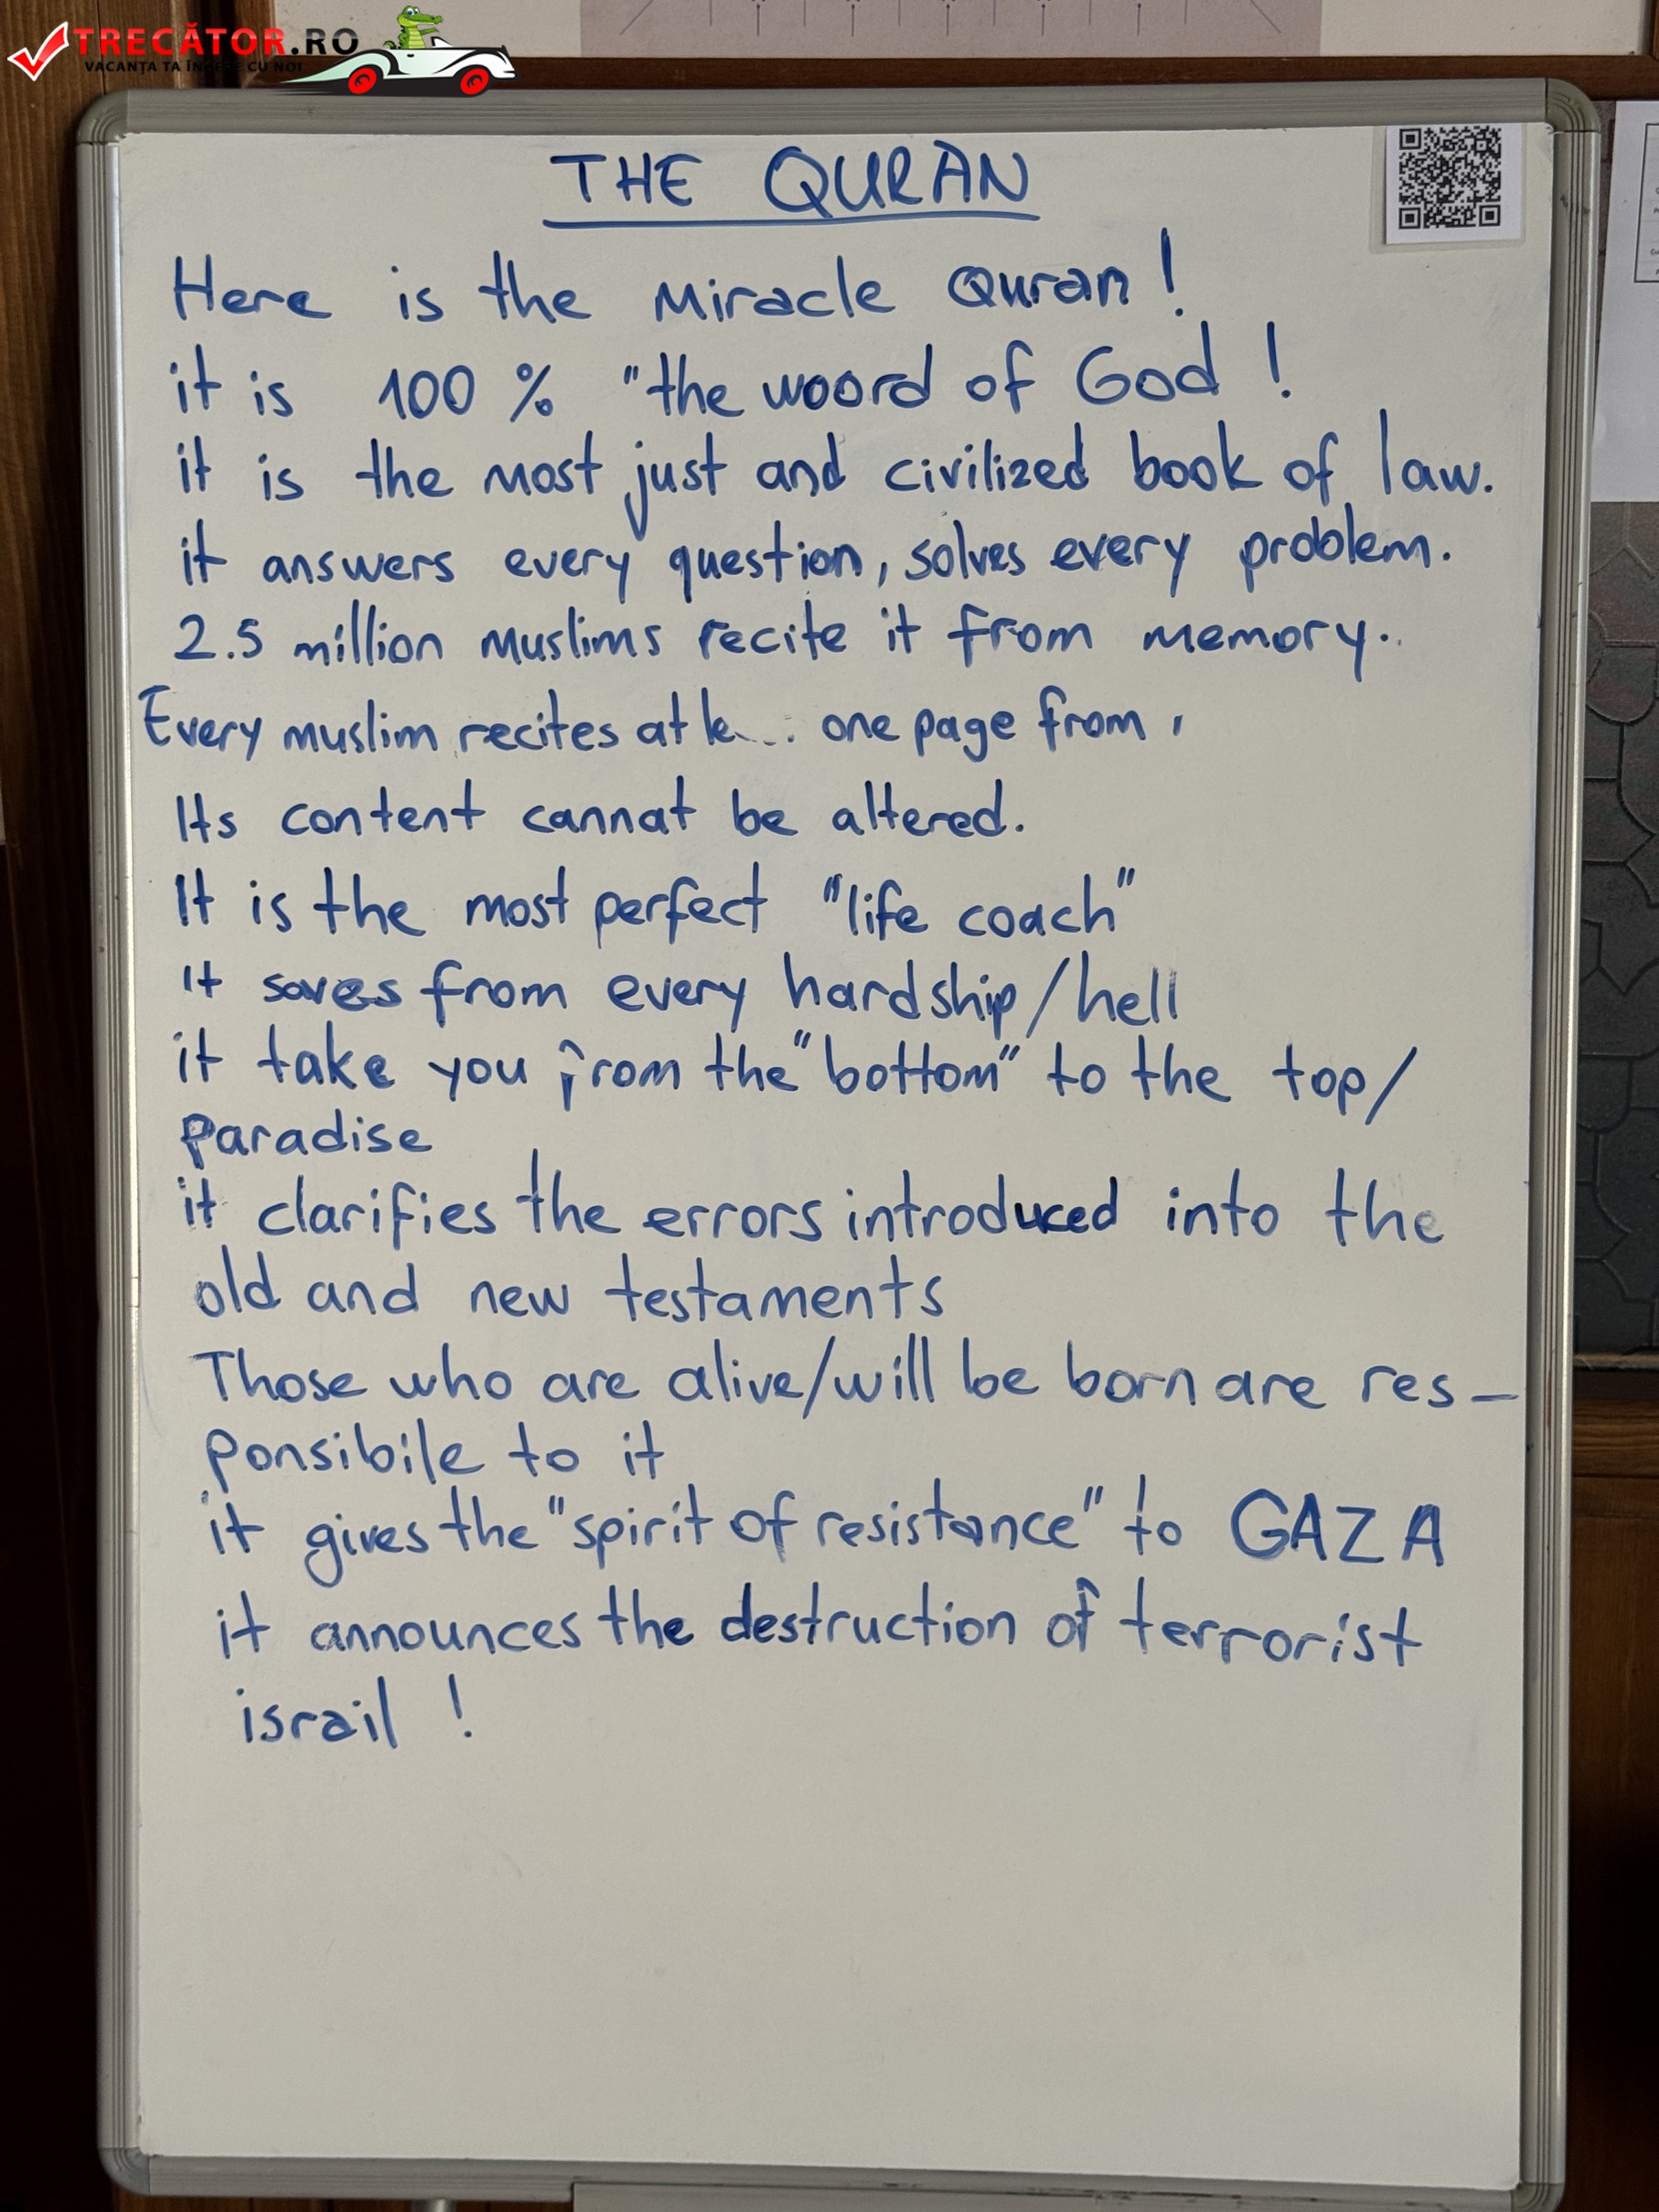 TRECĂTOR.RO
VACANȚA TA ÎNCEPE CU NOI
THE QURAN
Here is the Miracle Quran!
it is 100 % "the woord of God !
it is the most just and civilized book of law.
it answers every question, solves every problem.
2.5 million Muslims recite it from memory.
Every muslim recites at one page from
Its content cannat be altered.
It is the most perfect "life coach"
it saves from every hardship/hell
it take you from the "bottom" to the top/
paradise
it clarifies the errors introduced into the
old and new testaments
Those who are alive/will be born are res-
ponsibile to it
it gives the "spirit of resistance" to GAZA
it announces the destruction of terrorist
israil !